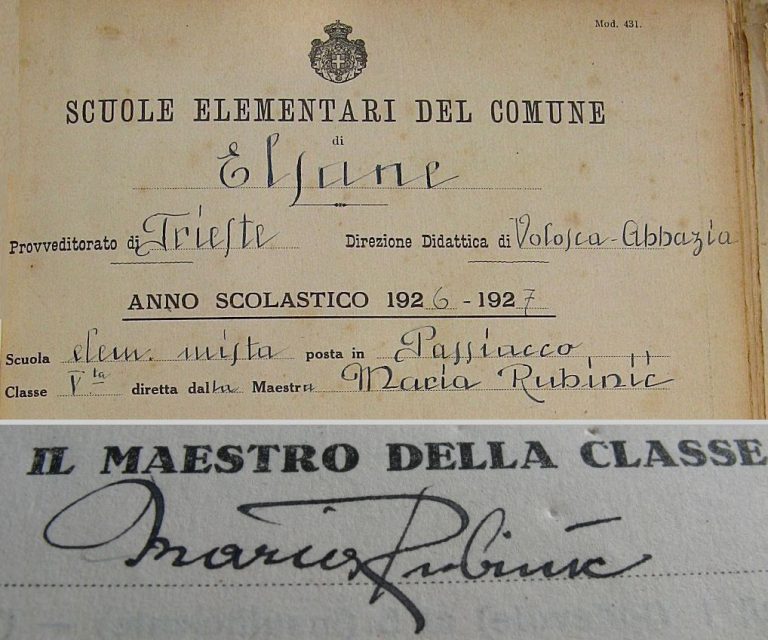 Mod. 431.
SCUOLE ELEMENTARI DEL COMUNE
di
Elsane
Provveditorato di Trieste Direzione Didattica di Volosca-Abbazia
ANNO SCOLASTICO 1926-1927
Scuola elem. mista posta in Passiacco
Classe Vta diretta dalla Maestra Maria Rubinič
IL MAESTRO DELLA CLASSE
Maria Rubinič